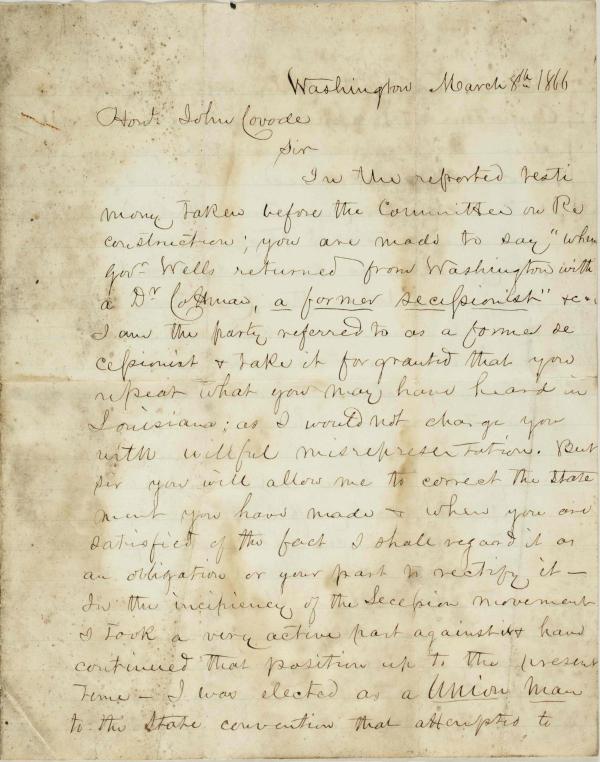 Washington March 8th 1866
Honl. John Covode
Sir
In the reported testi
mony taken before the Committee on Re
construction; you are made to say, "when
govr. Wells returned from Washington with
a Dr, a former secessionist" &c.
I am the party referred to as a former se
cessionist & take it for granted that you
repeat what you may have heard in
Louisiana; as I would not charge you
with willful misrepresentation. But
sir you will allow me to correct the state
ment you have made & when you are
satisfied of the fact I shall regard it as
an obligation on your part to rectify it —
In the incipiency of the Secession movement
I took a very active part against it & have
continued that position up to the present
time — I was elected as a Union Man
to the State convention that attempted to